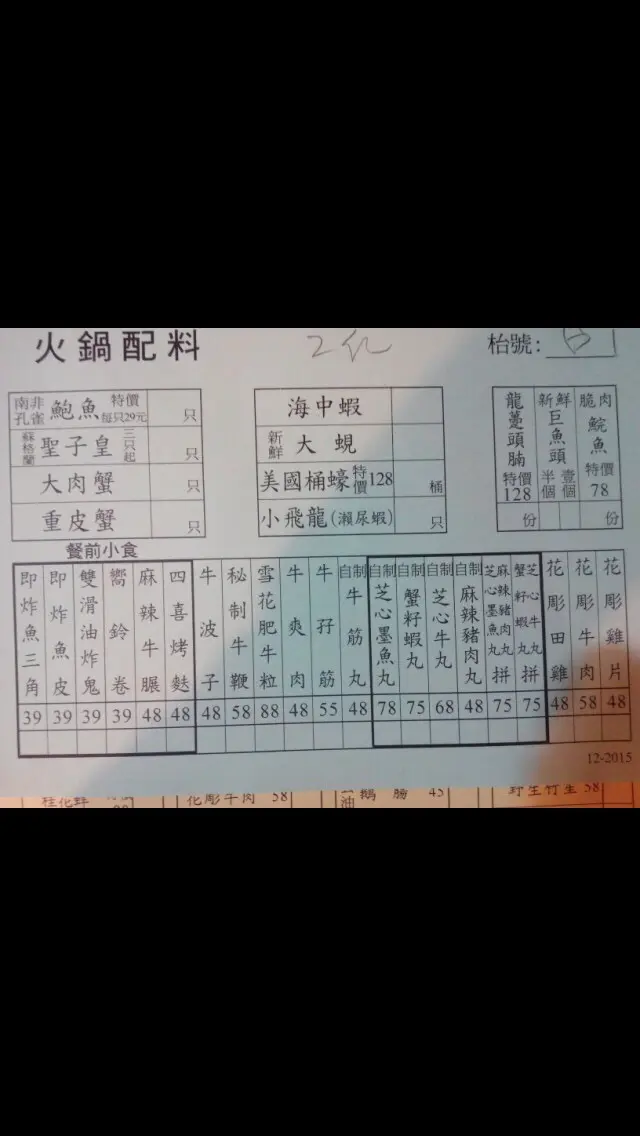 火鍋配料
枱號:
南非孔雀 鮑魚 特價每只29元 只
蘇格蘭 聖子皇 三只起 只
大肉蟹 只
重皮蟹 只
海中蝦
新鮮 大蜆
美國桶蠔 特價128 桶
小飛龍(瀨尿蝦) 只
龍躉頭腩 特價128 份
新鮮巨魚頭 半個 壹個
脆肉鯇魚 特價78 份
餐前小食
即炸魚三角 39
即炸魚皮 39
雙滑油炸鬼 39
嚮鈴卷 39
麻辣牛𦟌 48
四喜烤麩 48
牛波子 48
秘制牛鞭 58
雪花肥牛粒 88
牛爽肉 48
牛孖筋 55
自制牛筋丸 48
自制芝心墨魚丸 78
自制蟹籽蝦丸 75
自制芝心牛丸 68
自制麻辣豬肉丸 48
麻辣豬肉丸 芝心墨魚丸 拼 75
芝心牛丸 蟹籽蝦丸 拼 75
花彫田雞 48
花彫牛肉 58
花彫雞片 48
12-2015
桂花蚌
花彫牛肉 58
油 鵝腸 45
野生竹笙 58